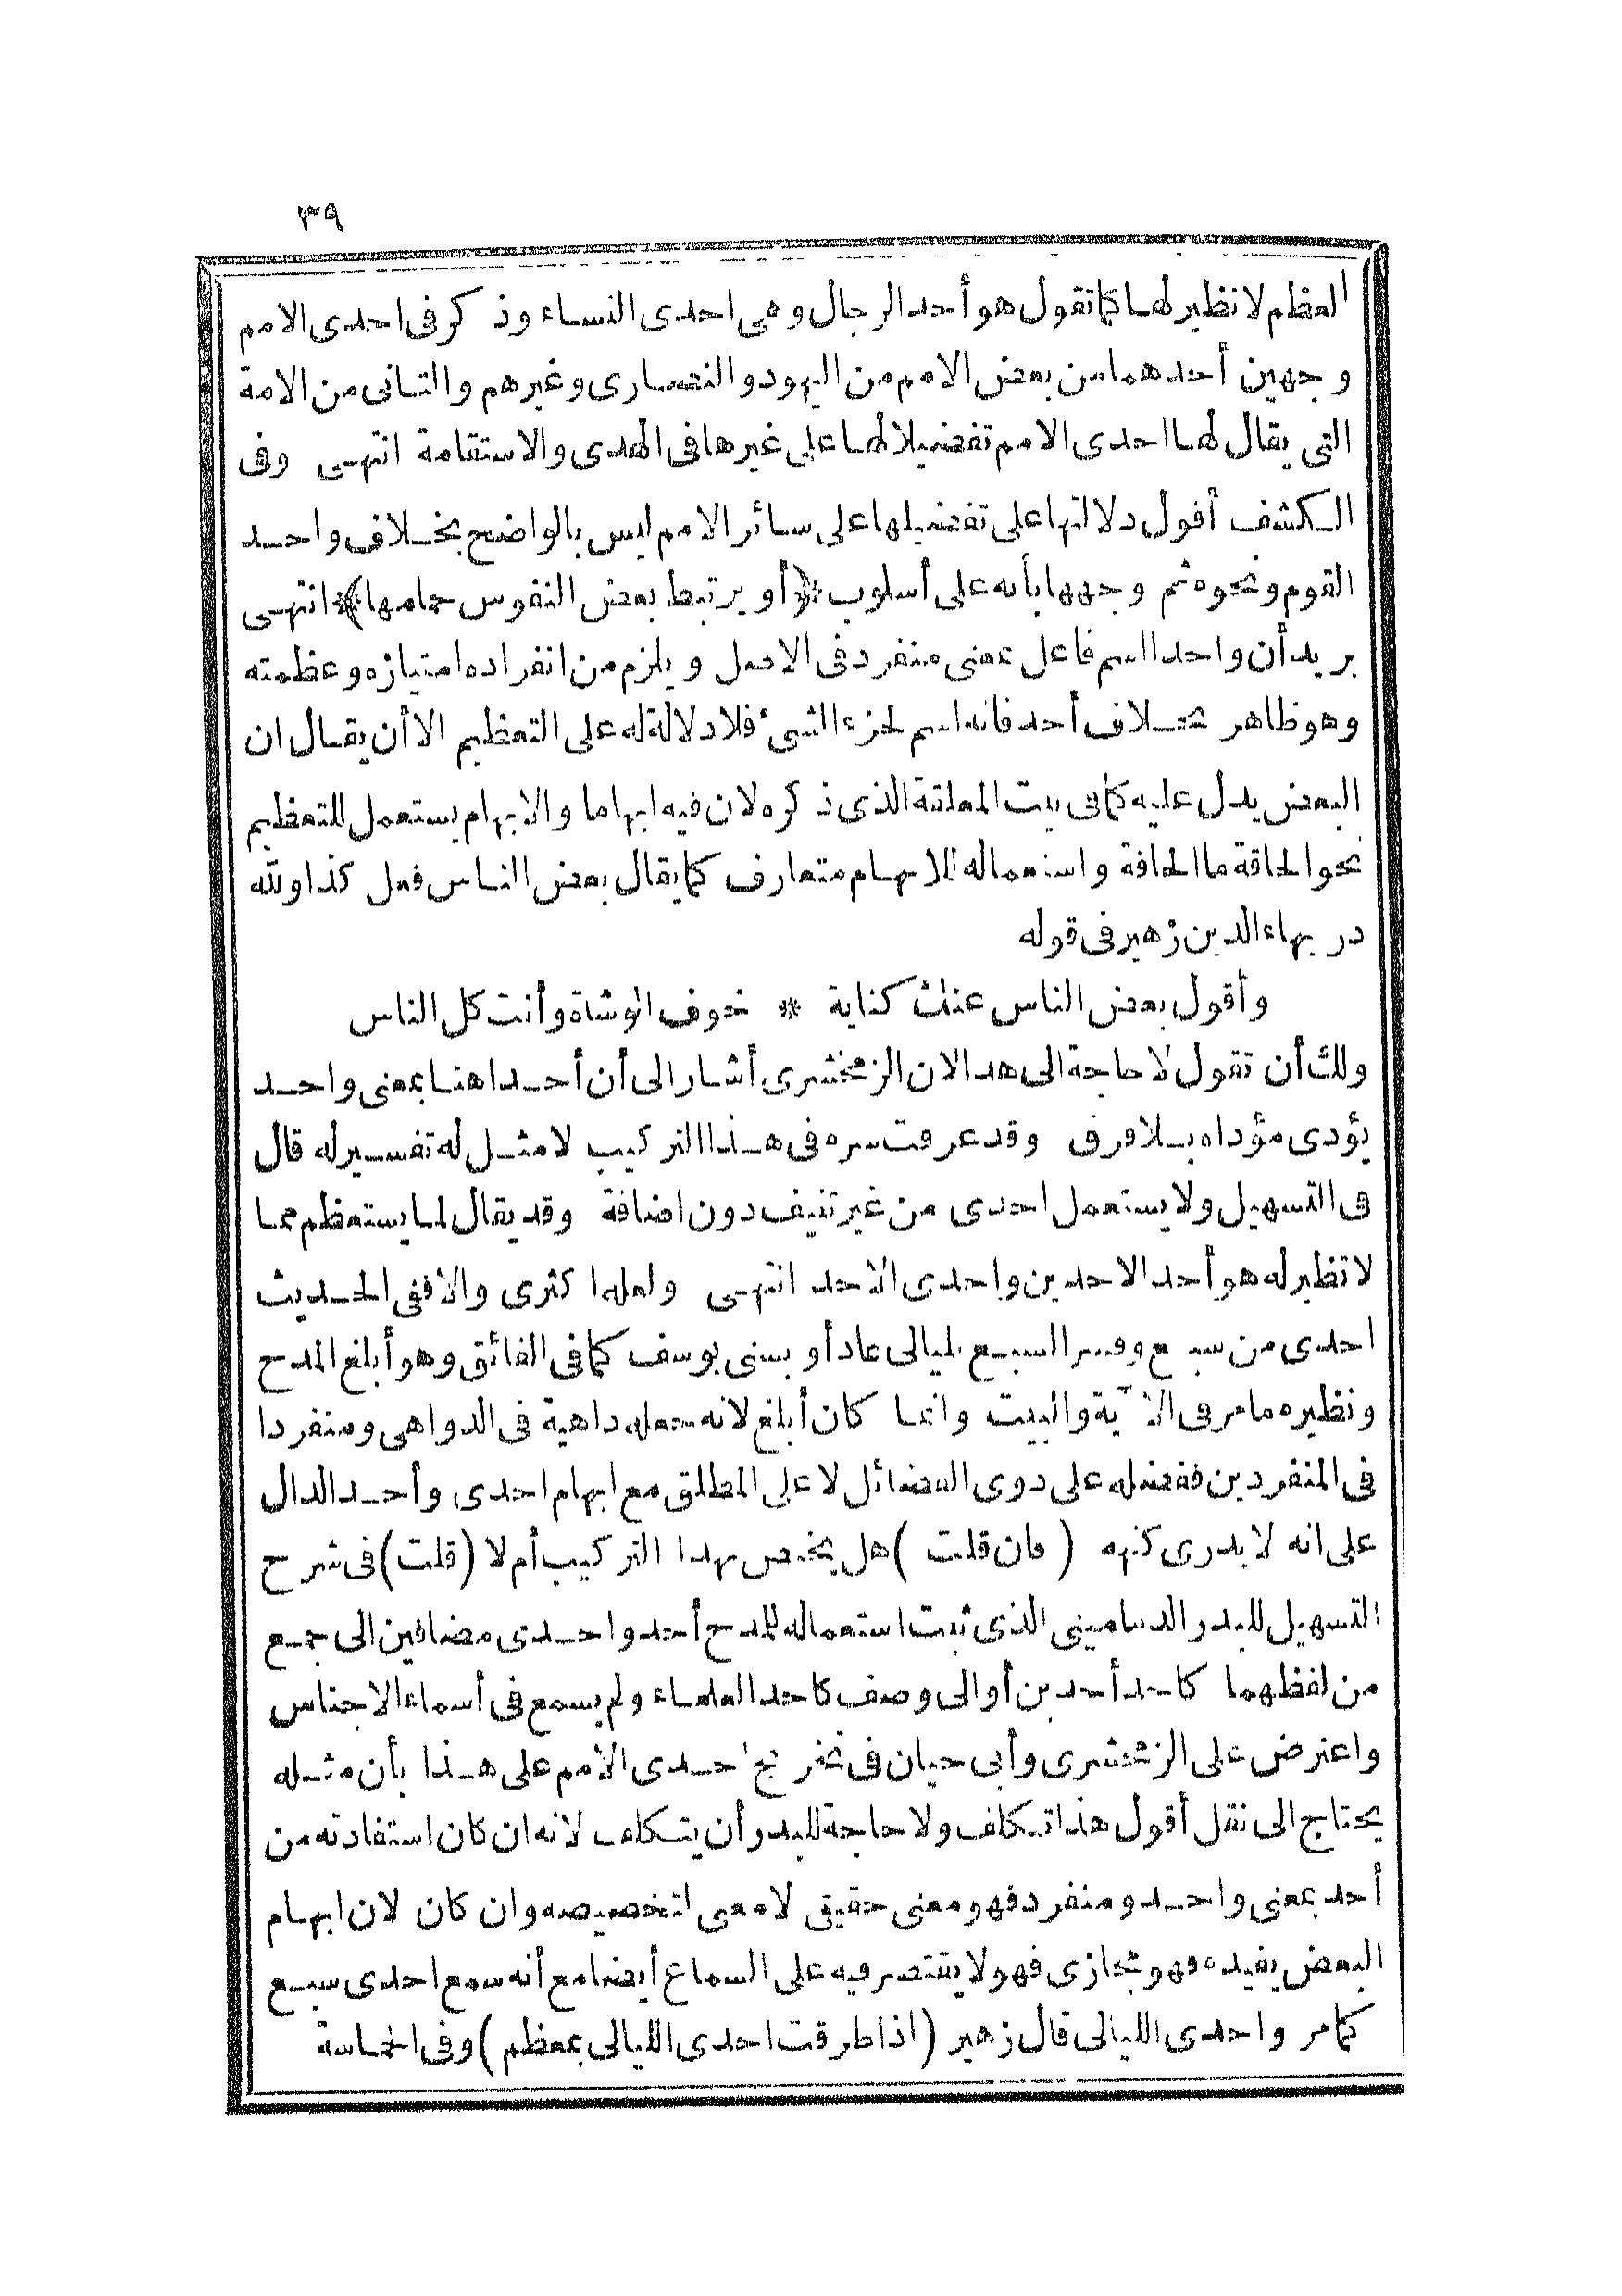 ٣٩
العظم لا نظير لها كما تقول هو أحد الرجال وهي احدى النساء وذكر فى احدى الامم
وجهين أحدهما من بعض الامم من اليهود والنصارى وغيرهم والثانى من الامة
التى يقال لها احدى الامم تفضيلا لها على غيرها فى الهدى والاستقامة انتهى وفى
الكشف أقول دلالتها على تفضيلها على سائر الامم ليس بالواضح بخلاف واحد
القوم ونحوه ثم وجهها بأنه على أسلوب * (أو يرتبط بعض النفوس حمامها) * انتهى
يريد أن واحدا اسم فاعل بمعنى منفرد فى الاصل ويلزم من انفراده امتيازه وعظمته
وهو ظاهر بخلاف أحد فانه اسم لجزء الشئ فلا دلالة له على التعظيم الا أن يقال ان
البعض يدل عليه كما فى بيت المعلقة الذى ذكره لان فيه ابهاما والابهام يستعمل للتعظيم
نحو الحاقة ما الحاقة واستعماله للابهام متعارف كما يقال بعض الناس فعل كذا ولله
در بهاء الدين زهير فى قوله
وأقول بعض الناس عنك كناية * خوف الوشاة وأنت كل الناس
ولك أن تقول لا حاجة الى هذا لان الزمخشرى أشار الى أن أحدا هنا بمعنى واحد
يؤدى مؤداه بلا فرق وقد عرفت سره فى هذا التركيب لا مثل له تفسير له قال
فى التسهيل ولا يستعمل احدى من غير تنيف دون اضافة وقد يقال لما يستعظم مما
لا نظير له هو أحد الاحدين واحدى الاحد انتهى ولعله اكثرى والا ففى الحديث
احدى من سبع وفسر السبع بليالى عاد أو بسنى يوسف كما فى الفائق وهو أبلغ المدح
ونظيره ما مر فى الآية والبيت وانما كان أبلغ لانه جعله داهية فى الدواهى ومنفردا
فى المنفردين ففضله على ذوى الفضائل لا على المطلق مع ابهام احدى وأحد الدال
على انه لا يدرى كنهه (فان قلت) هل يختص بهذا التركيب أم لا (قلت) فى شرح
التسهيل للبدر الدمامينى الذى ثبت استعماله للمدح أحد واحدى مضافين الى جمع
من لفظهما كاحد أحدين أو الى وصف كاحد العلماء ولم يسمع فى أسماء الاجناس
واعترض على الزمخشرى وأبى حيان فى تخريج احدى الامم على هذا بأن مثله
يحتاج الى نقل أقول هذا تكلف ولا حاجة للبدر أن يتكلف لانه ان كان استفادته من
أحد بمعنى واحد ومنفرد فهو معنى حقيقى لا معنى لتخصيصه وان كان لان ابهام
البعض يفيده فهو مجازى فهو لا يقتصر فيه على السماع أيضا مع أنه سمع احدى سبع
كما مر واحدى الليالى قال زهير (اذا طرقت احدى الليالى بمعظم) وفى الحماسة